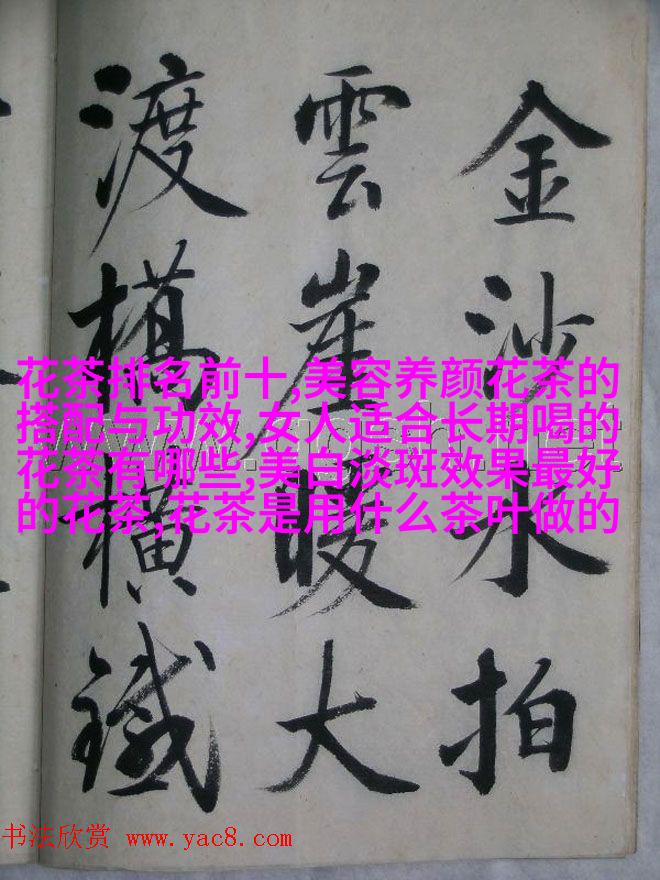 金沙水拍
雲崖暖大
渡橋橫鐵
花茶排名前十,美容养颜花茶的
搭配与功效,女人适合长期喝的
花茶有哪些,美白淡斑效果最好
的花茶,花茶是用什么茶叶做的
书法欣赏 www.yac8.com